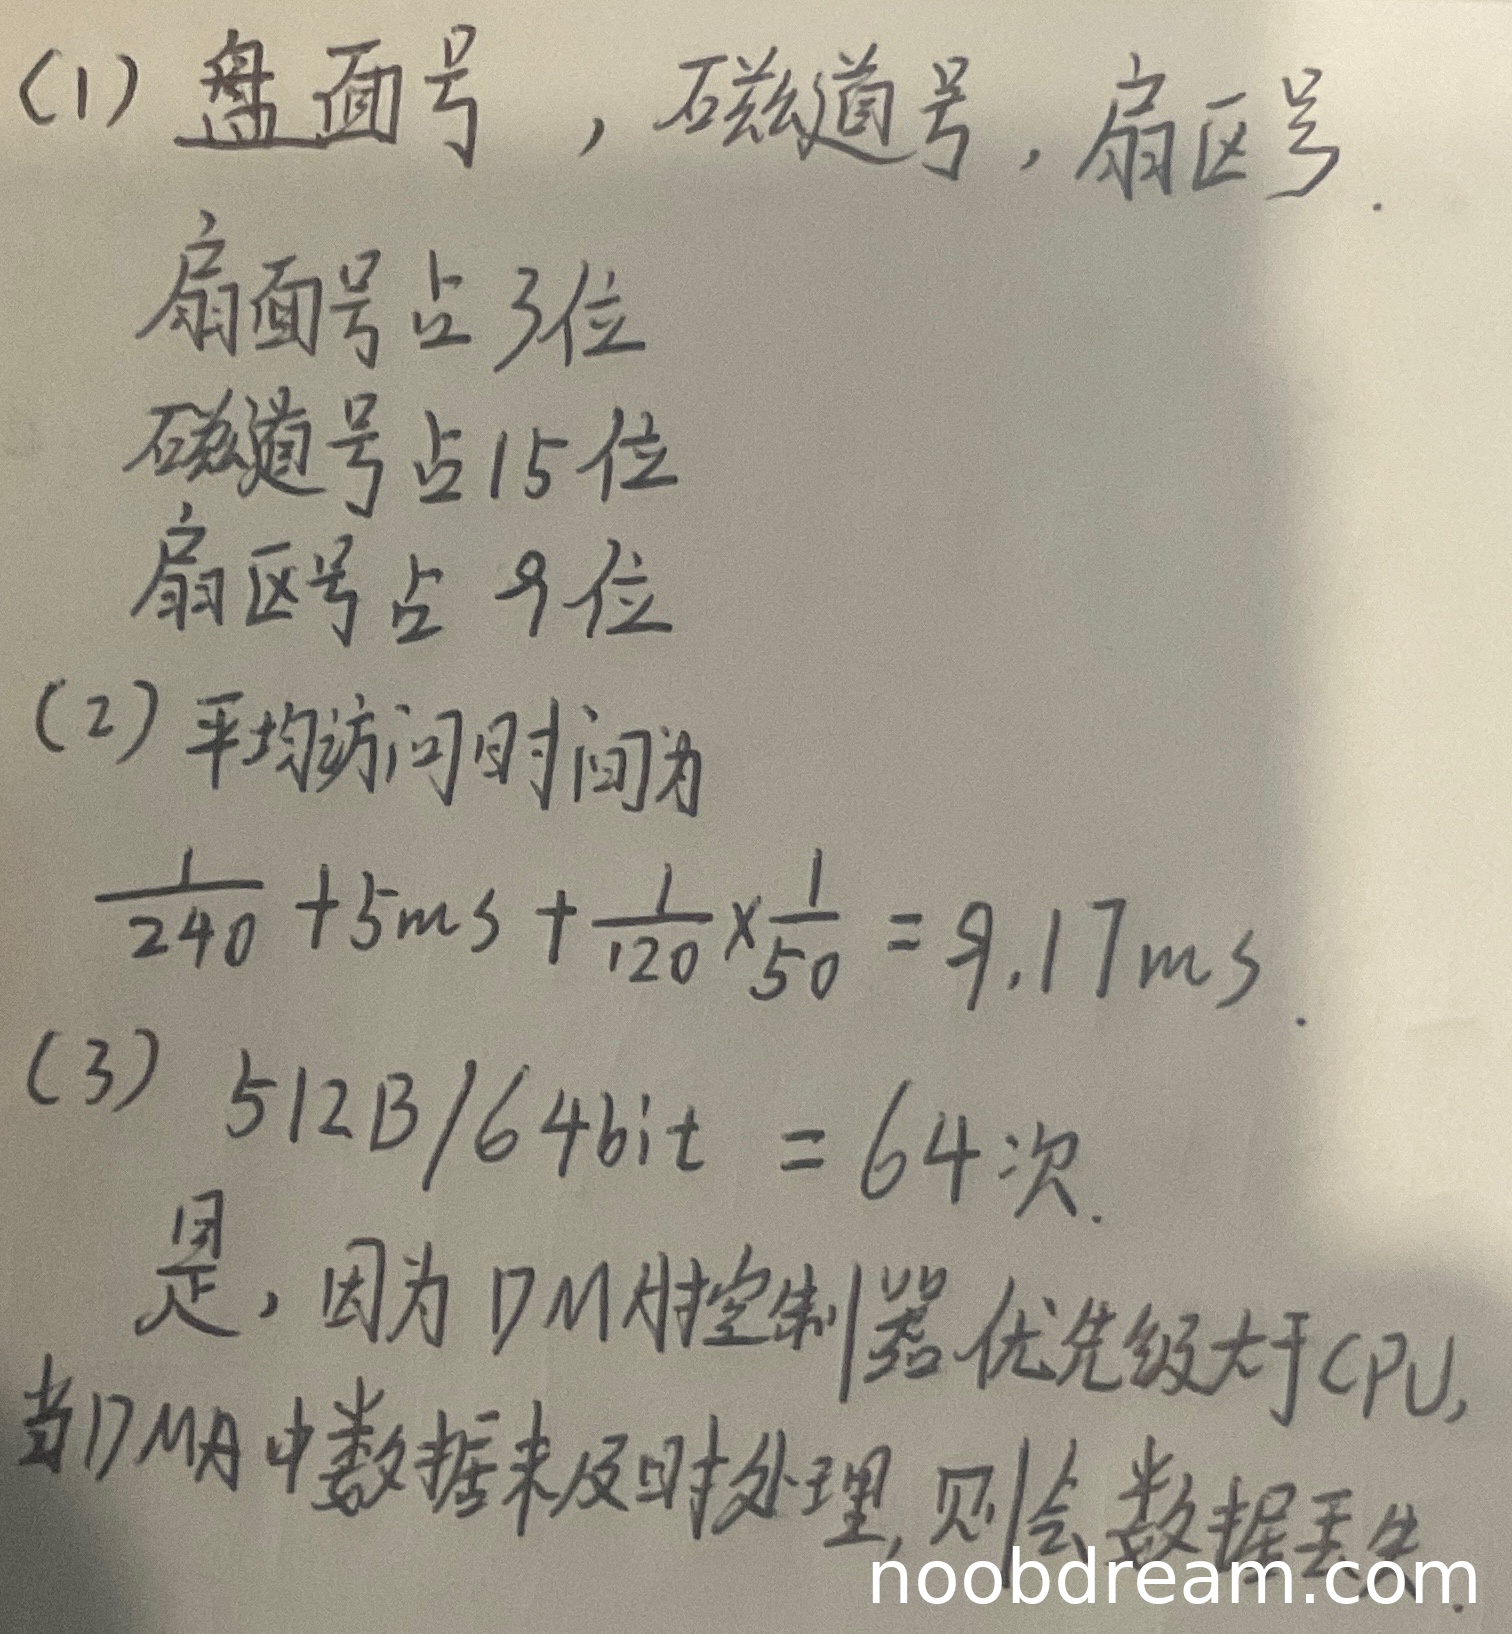 (1) 盘面号，磁道号，扇区号.
扇面号占3位
磁道号占15位
扇区号占9位
(2) 平均访问时间为
1/240 + 5ms + 1/120 × 1/50 = 9.17ms.
(3) 512B/64bit = 64次.
是，因为DMA控制器优先级大于CPU,
当DMA中数据未及时处理,则会数据丢失.
noobdream.com